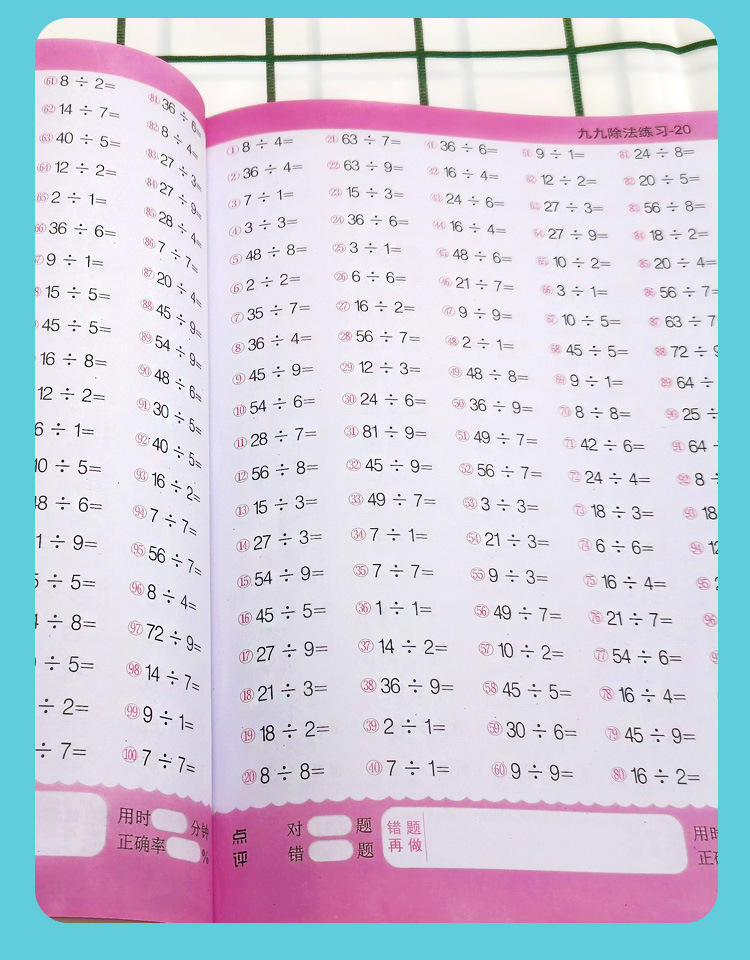 61 8 ÷ 2=
62 14 ÷ 7=
63 40 ÷ 5=
64 12 ÷ 2=
65 2 ÷ 1=
66 36 ÷ 6=
9 ÷ 1=
15 ÷ 5=
45 ÷ 5=
16 ÷ 8=
12 ÷ 2=
6 ÷ 1=
÷ 5=
÷ 6=
÷ 9=
÷ 5=
÷ 8=
÷ 5=
÷ 2=
÷ 7=
81 36 ÷ 6=
82 8 ÷ 4=
83 27 ÷ 3=
84 27 ÷ 9=
85 28 ÷ 4=
86 7 ÷ 7=
87 20 ÷ 4=
88 45 ÷ 9=
89 54 ÷ 9=
90 48 ÷ 6=
91 30 ÷ 5=
92 40 ÷ 5=
93 16 ÷ 2=
94 7 ÷ 7=
95 56 ÷ 7=
96 8 ÷ 4=
97 72 ÷ 9=
98 14 ÷ 7=
99 9 ÷ 1=
100 7 ÷ 7=
用时 分钟
正确率 %
九九除法练习-20
① 8 ÷ 4=
② 36 ÷ 4=
③ 7 ÷ 1=
④ 3 ÷ 3=
⑤ 48 ÷ 8=
⑥ 2 ÷ 2=
⑦ 35 ÷ 7=
⑧ 36 ÷ 4=
⑨ 45 ÷ 9=
⑩ 54 ÷ 6=
⑪ 28 ÷ 7=
⑫ 56 ÷ 8=
⑬ 15 ÷ 3=
⑭ 27 ÷ 3=
⑮ 54 ÷ 9=
⑯ 45 ÷ 5=
⑰ 27 ÷ 9=
⑱ 21 ÷ 3=
⑲ 18 ÷ 2=
⑳ 8 ÷ 8=
㉑ 63 ÷ 7=
㉒ 63 ÷ 9=
㉓ 15 ÷ 3=
㉔ 36 ÷ 6=
㉕ 3 ÷ 1=
㉖ 6 ÷ 6=
㉗ 16 ÷ 2=
㉘ 56 ÷ 7=
㉙ 12 ÷ 3=
㉚ 24 ÷ 6=
㉛ 81 ÷ 9=
㉜ 45 ÷ 9=
㉝ 49 ÷ 7=
㉞ 7 ÷ 1=
㉟ 7 ÷ 7=
㊱ 1 ÷ 1=
㊲ 14 ÷ 2=
㊳ 36 ÷ 9=
㊴ 2 ÷ 1=
㊵ 7 ÷ 1=
㊶ 36 ÷ 6=
㊷ 16 ÷ 4=
㊸ 24 ÷ 6=
㊹ 16 ÷ 4=
㊺ 48 ÷ 6=
㊻ 21 ÷ 7=
㊼ 9 ÷ 9=
㊽ 2 ÷ 1=
㊾ 48 ÷ 8=
㊿ 36 ÷ 9=
51 49 ÷ 7=
52 56 ÷ 7=
53 3 ÷ 3=
54 21 ÷ 3=
55 9 ÷ 3=
56 49 ÷ 7=
57 10 ÷ 2=
58 45 ÷ 5=
59 30 ÷ 6=
60 9 ÷ 9=
61 9 ÷ 1=
62 12 ÷ 2=
63 27 ÷ 3=
64 27 ÷ 9=
65 10 ÷ 2=
66 3 ÷ 1=
67 10 ÷ 5=
68 45 ÷ 5=
69 9 ÷ 1=
70 8 ÷ 8=
71 42 ÷ 6=
72 24 ÷ 4=
73 18 ÷ 3=
74 6 ÷ 6=
75 16 ÷ 4=
76 21 ÷ 7=
77 54 ÷ 6=
78 16 ÷ 4=
79 45 ÷ 9=
80 16 ÷ 2=
81 24 ÷ 8=
82 20 ÷ 5=
83 56 ÷ 8=
84 18 ÷ 2=
85 20 ÷ 4=
86 56 ÷ 7=
87 63 ÷ 7
88 72 ÷ 9
89 64 ÷
90 25 ÷
91 64 ÷
92 8 ÷
93 18
94 12
95
96
点评
对 题
错 题
错题
再做
用时
正